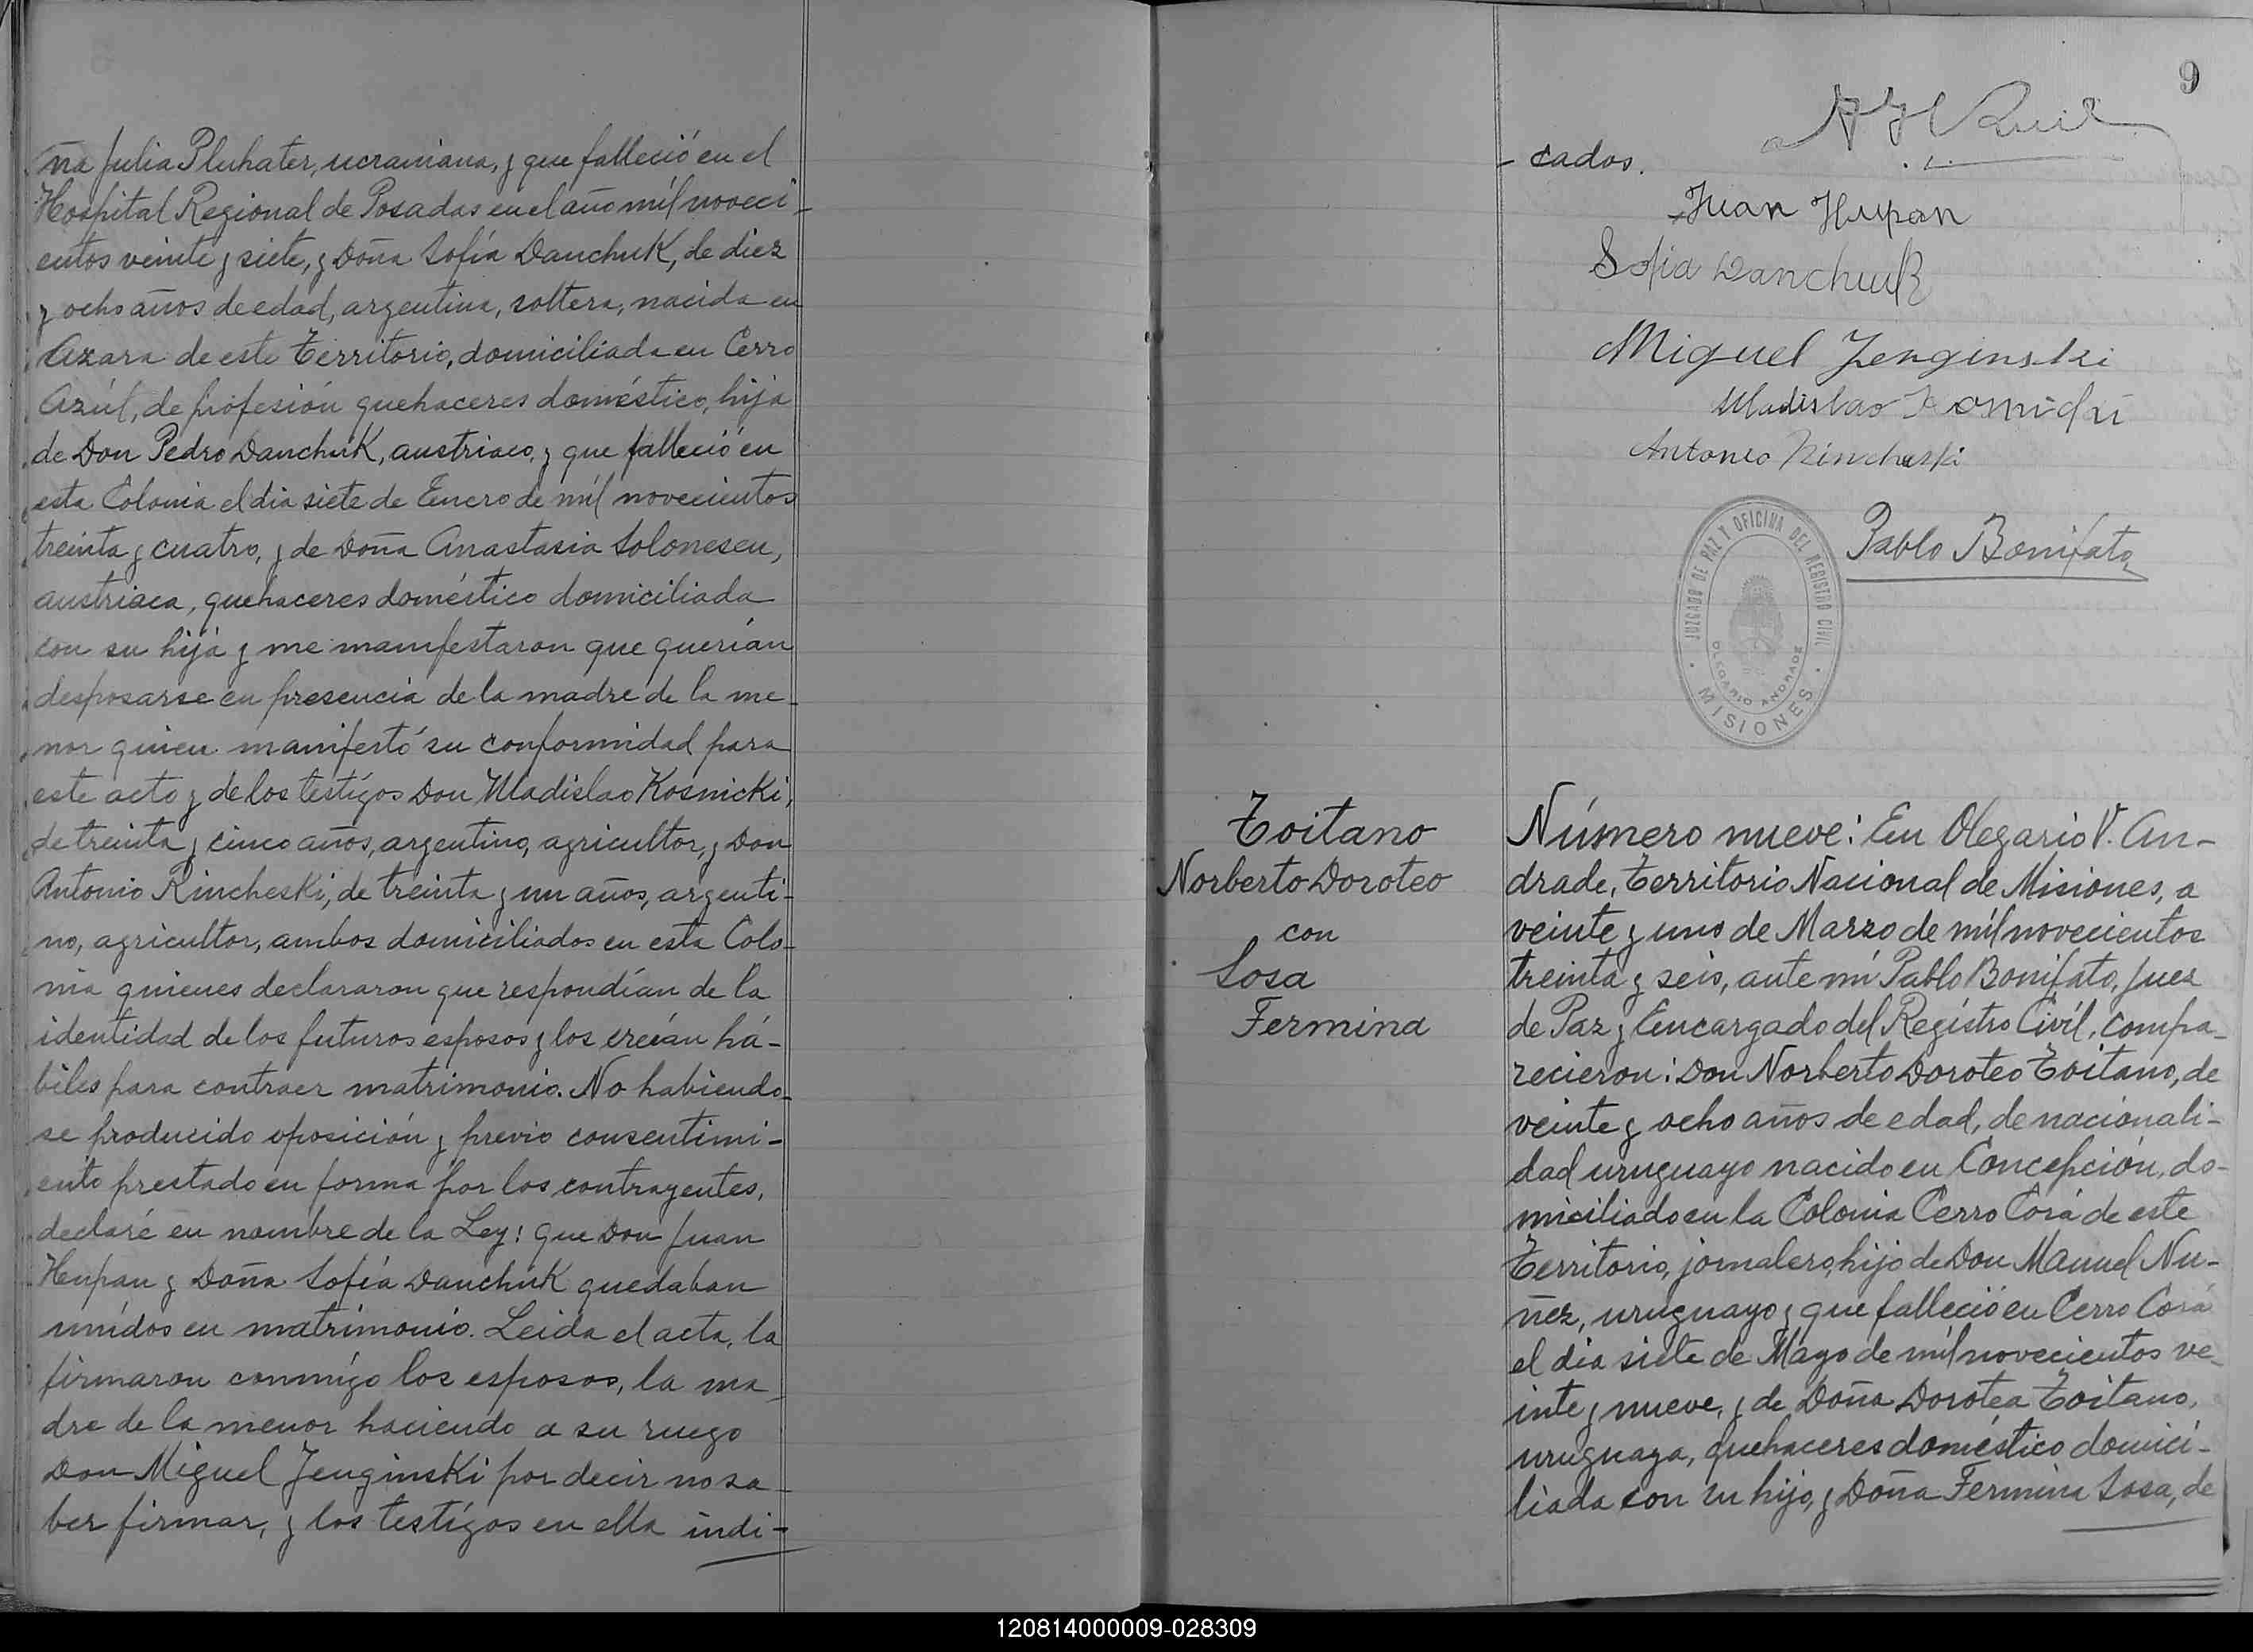 ña Julia Pluhater, ucraniana, y que falleció en el
Hospital Regional de Posadas en el año mil noveci-
entos veinte y siete, y Doña Sofía Danchuk, de diez
y ocho años de edad, argentina, soltera, nacida en
Azara de este Territorio, domiciliada en Cerro
Azúl, de profesión quehaceres doméstico, hija
de Don Pedro Danchuk, austriaco, y que falleció en
esta Colonia el dia siete de Enero de mil novecientos
treinta y cuatro, y de Doña Anastasia Solonescu,
austriaca, quehaceres doméstico domiciliada
con su hija y me manifestaron que querían
desposarse en presencia de la madre de la me-
nor quien manifestó su conformidad para
este acto y de los testígos Don Uladislao Kosnicki,
de treinta y cinco años, argentino, agricultor, y Don
Antonio Rincheski, de treinta y un años, argenti-
no, agricultor, ambos domiciliados en esta Colo-
nia quienes declararon que respondían de la
identidad de los futuros esposos y los creían há-
biles para contraer matrimonio. No habiendo-
se producido oposición y previo consentimi-
ento prestado en forma por los contrayentes,
declaré en nombre de la Ley: que Don Juan
Hupan y Doña Sofía Danchuk quedaban
unídos en matrimonio. Leida el acta, la
firmaron conmígo los esposos, la ma-
dre de la menor haciendo a su ruego
Don Miguel Jenginski por decir no sa-
ber firmar, y los testígos en ella indi-
9
- cados.
Juan Hupan
Sofia Danchuk
Miguel Jenginski
Uladislao
Antonio Rincheski
Pablo Bonifato
JUZGADO DE PAZ Y OFICINA DEL REGISTRO CIVIL
OLEGARIO ANDRADE
MISIONES
Toitano
Norberto Doroteo
con
Sosa
Fermina
Número nueve: En Olegario V. An-
drade, Territorio Nacional de Misiones, a
veinte y uno de Marzo de mil novecientos
treinta y seis, ante mí Pablo Bonifato, Juez
de Paz y Encargado del Regístro Civíl, compa-
recieron: Don Norberto Doroteo Toitano, de
veinte y ocho años de edad, de nacionali-
dad uruguayo nacido en Concepción, do-
miciliado en la Colonia Cerro Corá de este
Territorio, jornalero, hijo de Don Manuel Nu-
ñez, uruguayo y que falleció en Cerro Corá
el dia siete de Mayo de mil novecientos ve-
inte y nueve, y de Doña Dorotea Toitano,
uruguaya, quehaceres doméstico domici-
liada con su hijo, y Doña Fermina Sosa, de
120814000009-028309